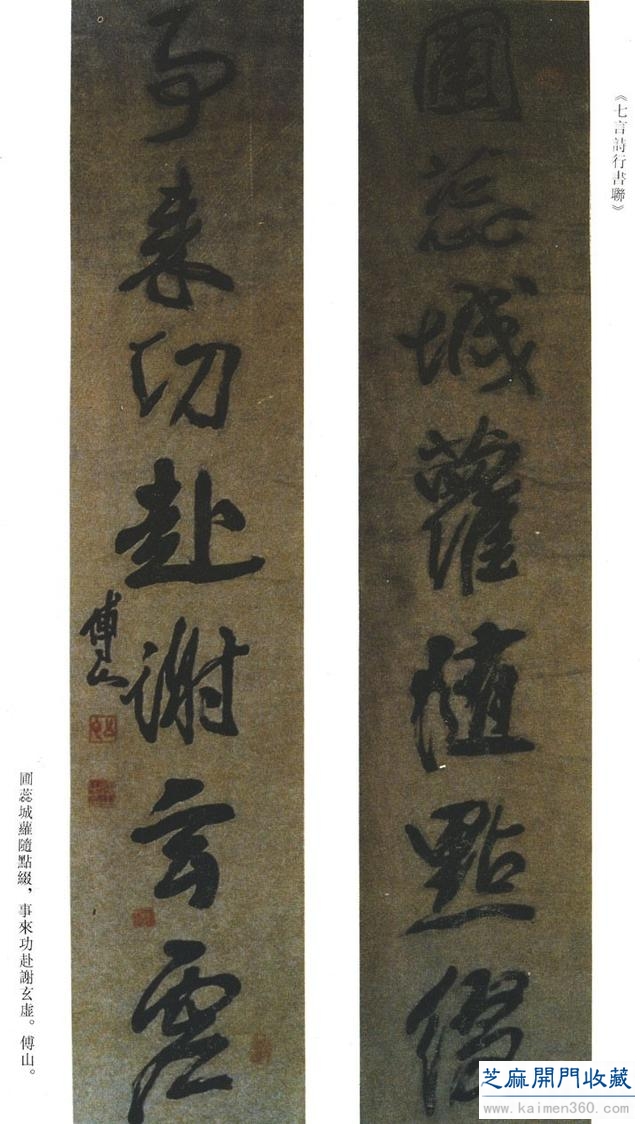 《七言詩行書聯》
圃蕊城蘿隨點綴
事來功赴謝玄虛
傅山
圃蕊城蘿隨點綴，事來功赴謝玄虛。傅山。
芝麻開門收藏
www.kaimen360.com